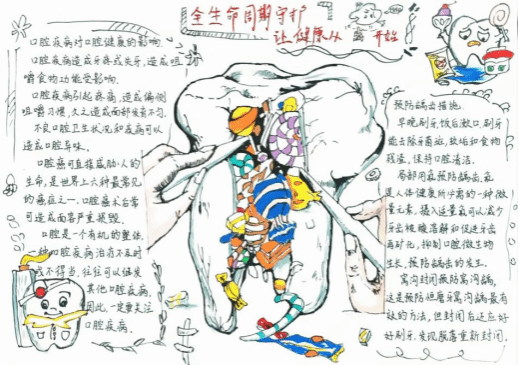 全生命周期守护
让健康从 齿 开始
口腔疾病对口腔健康的影响.
口腔疾病造成牙疼或失牙,造成咀
嚼食物功能受影响.
口腔疾病引起疼痛,造成偏侧
咀嚼习惯,久之造成面部发育不匀.
不良口腔卫生状况和疾病可以
造成口腔异味.
口腔癌可直接威胁人的
生命,是世界上六种最常见
的癌症之一.口腔癌术后常
可造成面容严重损毁.
口腔是一个有机的整体,
一种口腔疾病治疗不及时
或不得当,往往可以诱发
其他口腔疾病.
因此,一定要关注
口腔疾病.
预防龋齿措施.
早晚刷牙,饭后漱口,刷牙
能去除牙菌斑,软垢和食物
残渣,保持口腔清洁.
局部用氟预防龋齿,氟
是人体健康所必需的一种微
量元素,摄入适量氟可以减少
牙齿被酸溶解和促进牙齿
再矿化,抑制口腔微生物
生长,预防龋齿的发生.
窝沟封闭预防窝沟龋,
这是预防恒磨牙窝沟龋最有
效的方法,但封闭后还应好
好刷牙,发现脱落重新封闭.